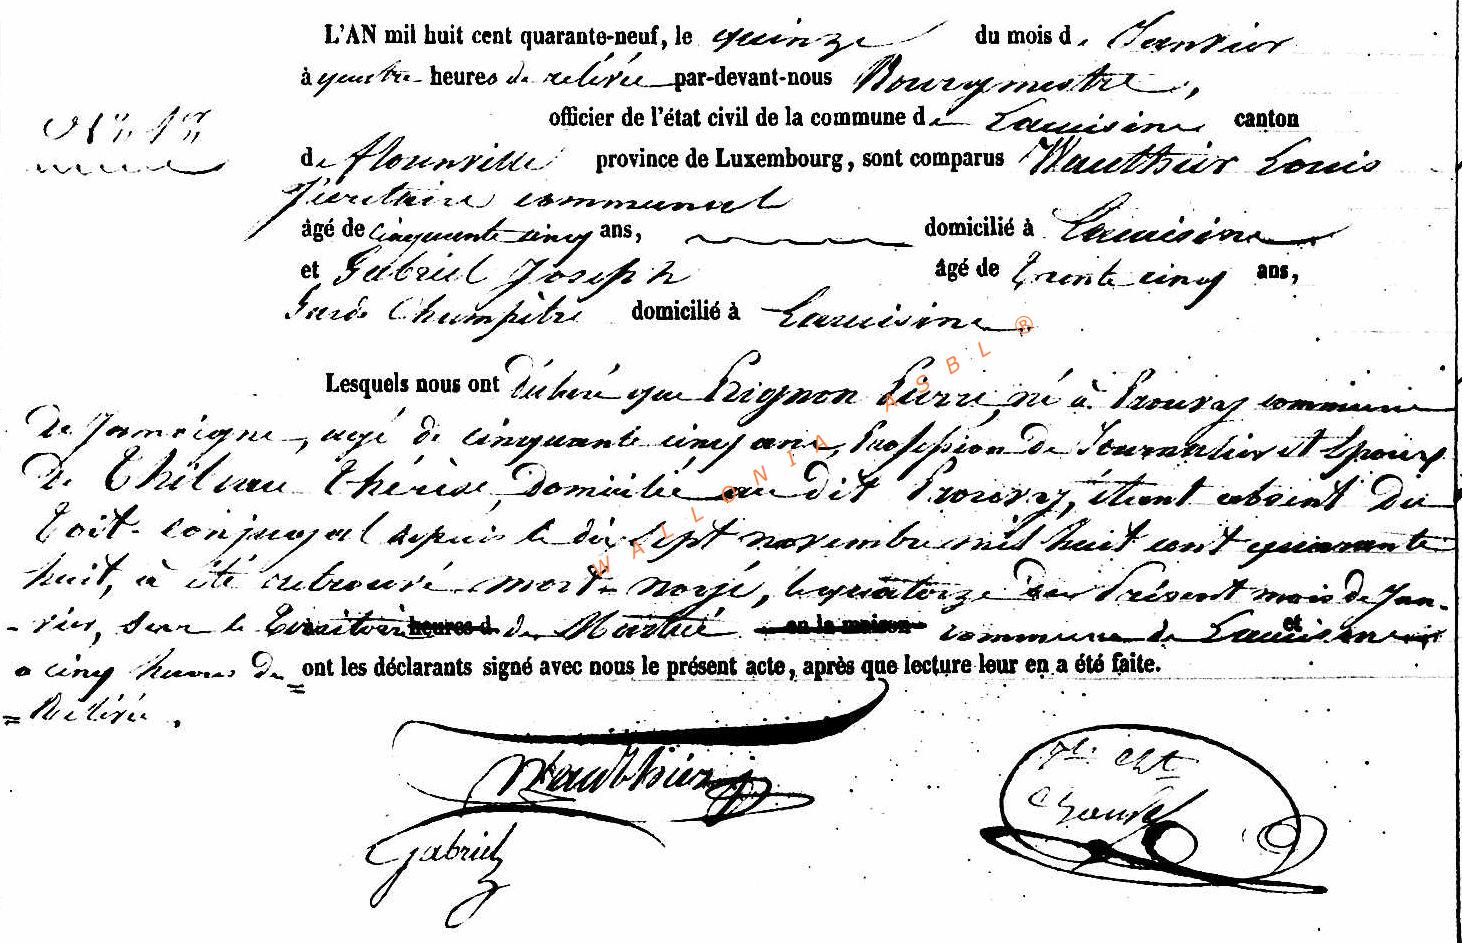 L'AN mil huit cent quarante-neuf, le quinze du mois de Janvier
à quatre heures de relevée par-devant-nous Bourgmestre,
officier de l'état civil de la commune de Lacuisine canton
de florenville province de Luxembourg, sont comparus Wauthier Louis
Sécrétaire communal
âgé de cinquante cinq ans, domicilié à Lacuisine
et Gabriel Joseph âgé de trente cinq ans,
Garde Champêtre domicilié à Lacuisine
Lesquels nous ont déclaré que Pierre, né à Prouvy commune
de Jamoigne, agé de cinquante cinq ans, Profession de Journalier et Epoux
de Thérèse, Domicilié au dit Prouvy, étant absent du
toit conjugal depuis le dix sept novembre mil huit cent quarante
huit, à été retrouvé mort noyé, le quatorze du Présent mois de Jan-
-vier, sur le Territoire heures d de Martué en la maison commune de Lacuisine et
a cinq heures de ont les déclarants signé avec nous le présent acte, après que lecture leur en a été faite.
= Relévée.
WALLONIA ASBL ®
Wauthier
Gabriel